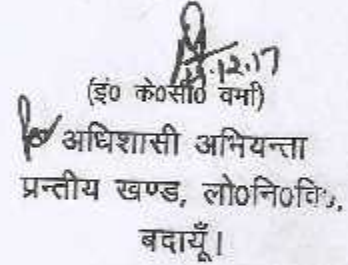 .12.17
(इं० के०सी० वर्मा)
अधिशासी अभियन्ता
प्रन्तीय खण्ड, लो०नि०वि०,
बदायूँ।